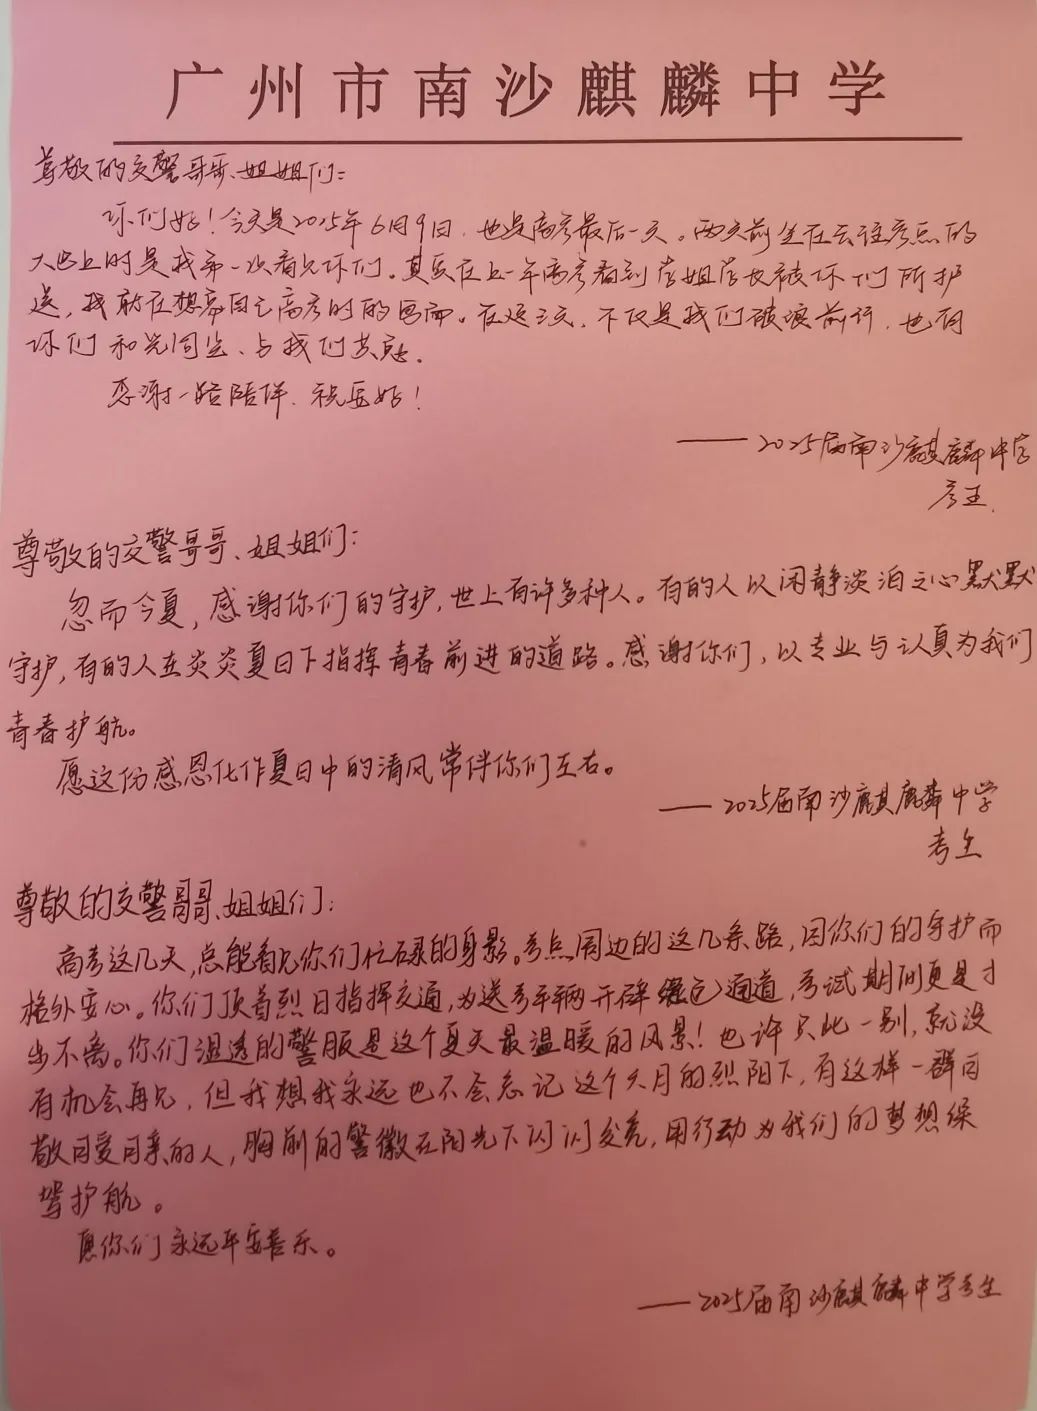 广州市南沙麒麟中学
尊敬的交警哥哥、姐姐们：
你们好！今天是2025年6月9日，也是高考最后一天。两天前坐在去往考点的
大巴上时是我第一次看见你们。其实在上一年高考看到学姐学长被你们所护
送，我就在想幕自己高考时的画面。在这三天，不仅是我们破浪前行，也有
你们和光同尘、与我们共赴。
感谢一路陪伴，祝安好！
——2025届南沙麒麟中学
考生
尊敬的交警哥哥、姐姐们：
忽而今夏，感谢你们的守护，世上有许多种人。有的人以闲静淡泊之心默默
守护，有的人在炎炎夏日下指挥青春前进的道路。感谢你们，以专业与认真为我们
青春护航。
愿这份感恩化作夏日中的清风常伴你们左右。
——2025届南沙麒麟中学
考生
尊敬的交警哥哥、姐姐们：
高考这几天，总能看见你们忙碌的身影。考点周边的这几条路，因你们的守护而
格外安心。你们顶着烈日指挥交通，为送考车辆开辟绿色通道，考试期间更是寸
步不离。你们湿透的警服是这个夏天最温暖的风景！也许只此一别，就没
有机会再见，但我想我永远也不会忘记这个六月的烈阳下，有这样一群可
敬可爱可亲的人，胸前的警徽在阳光下闪闪发亮，用行动为我们的梦想保
驾护航。
愿你们永远平安喜乐。
——2025届南沙麒麟中学考生